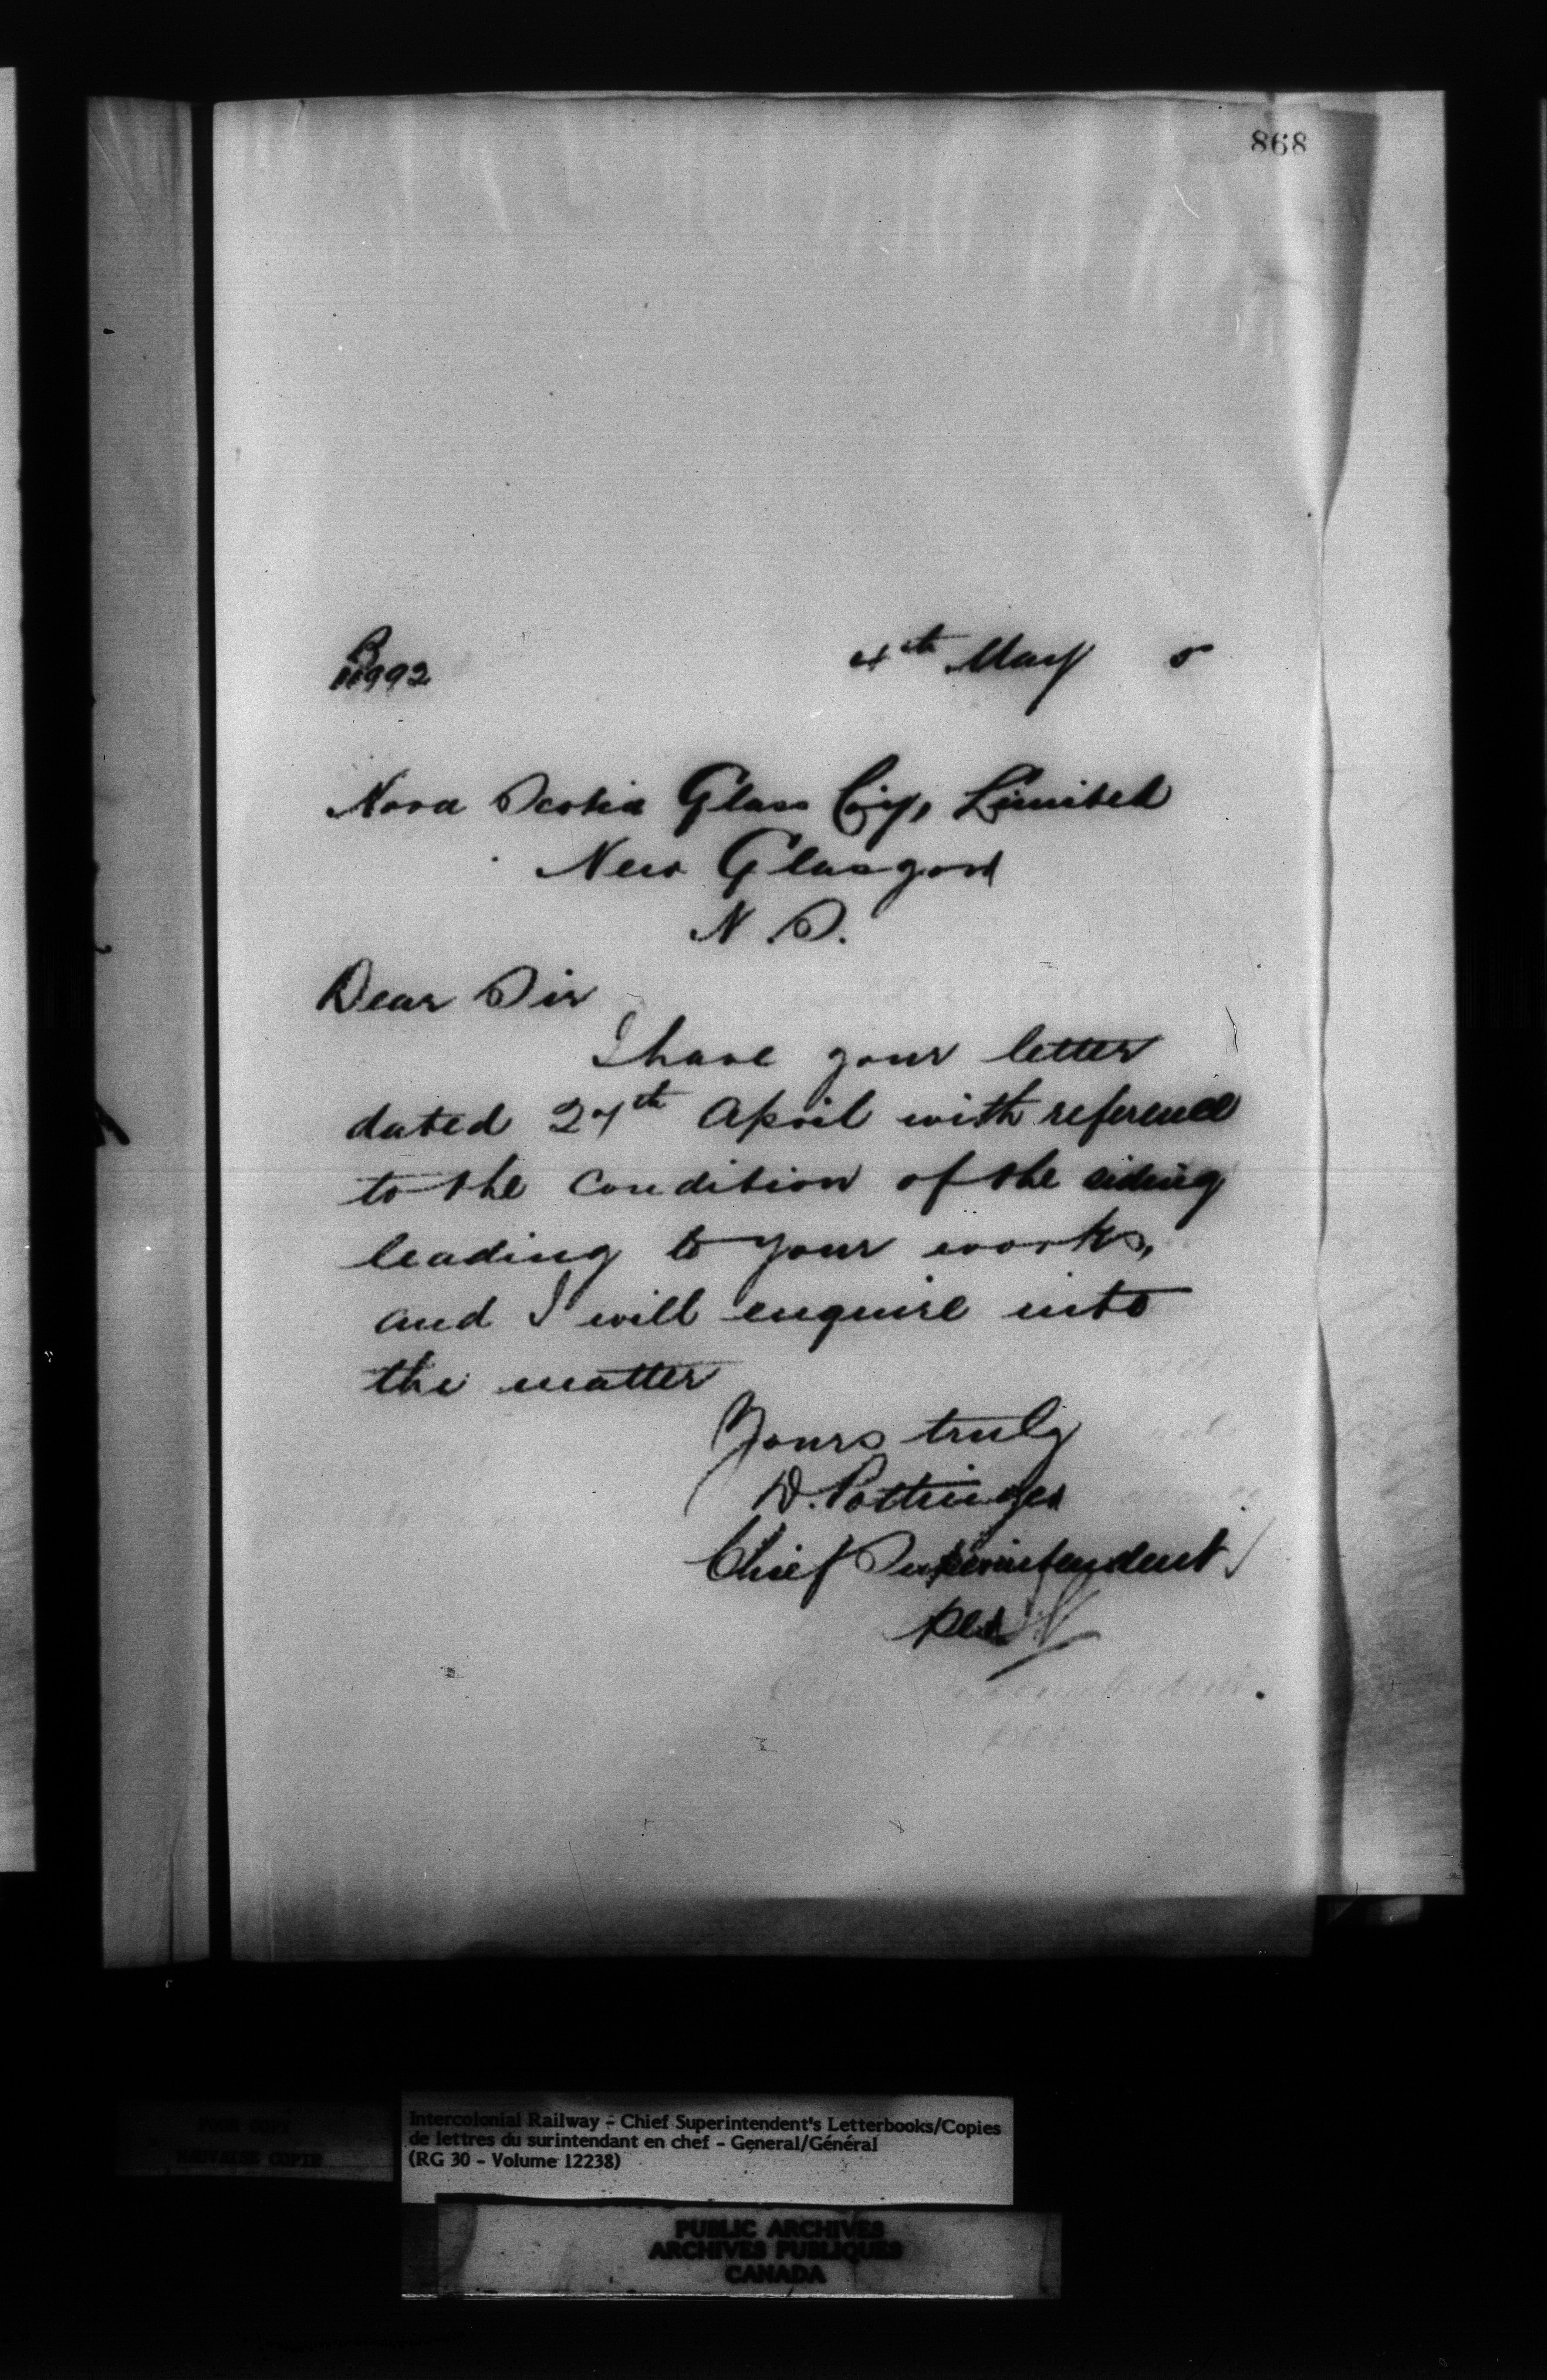 868
B
11992
4th May 5
Nova Scotia Glass Coy, Limited
New Glasgow
N.S.
Dear Sir
I have your letter
dated 27th April with reference
to the condition of the siding
leading to your works,
and I will enquire into
the matter
Yours truly
D. Pottinger
Chief Superintendent
per
POOR COPY
MAUVAISE COPIE
Intercolonial Railway - Chief Superintendent's Letterbooks/Copies
de lettres du surintendant en chef - General/Général
(RG 30 - Volume 12238)
PUBLIC ARCHIVES
ARCHIVES PUBLIQUES
CANADA